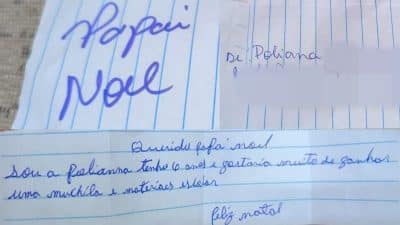 Papai
Noel
De Poliana
Querido papai noel
sou a Polianna tenho 6 anos e gostaria muito de ganhar
uma muchila e materiais escolar
feliz natal